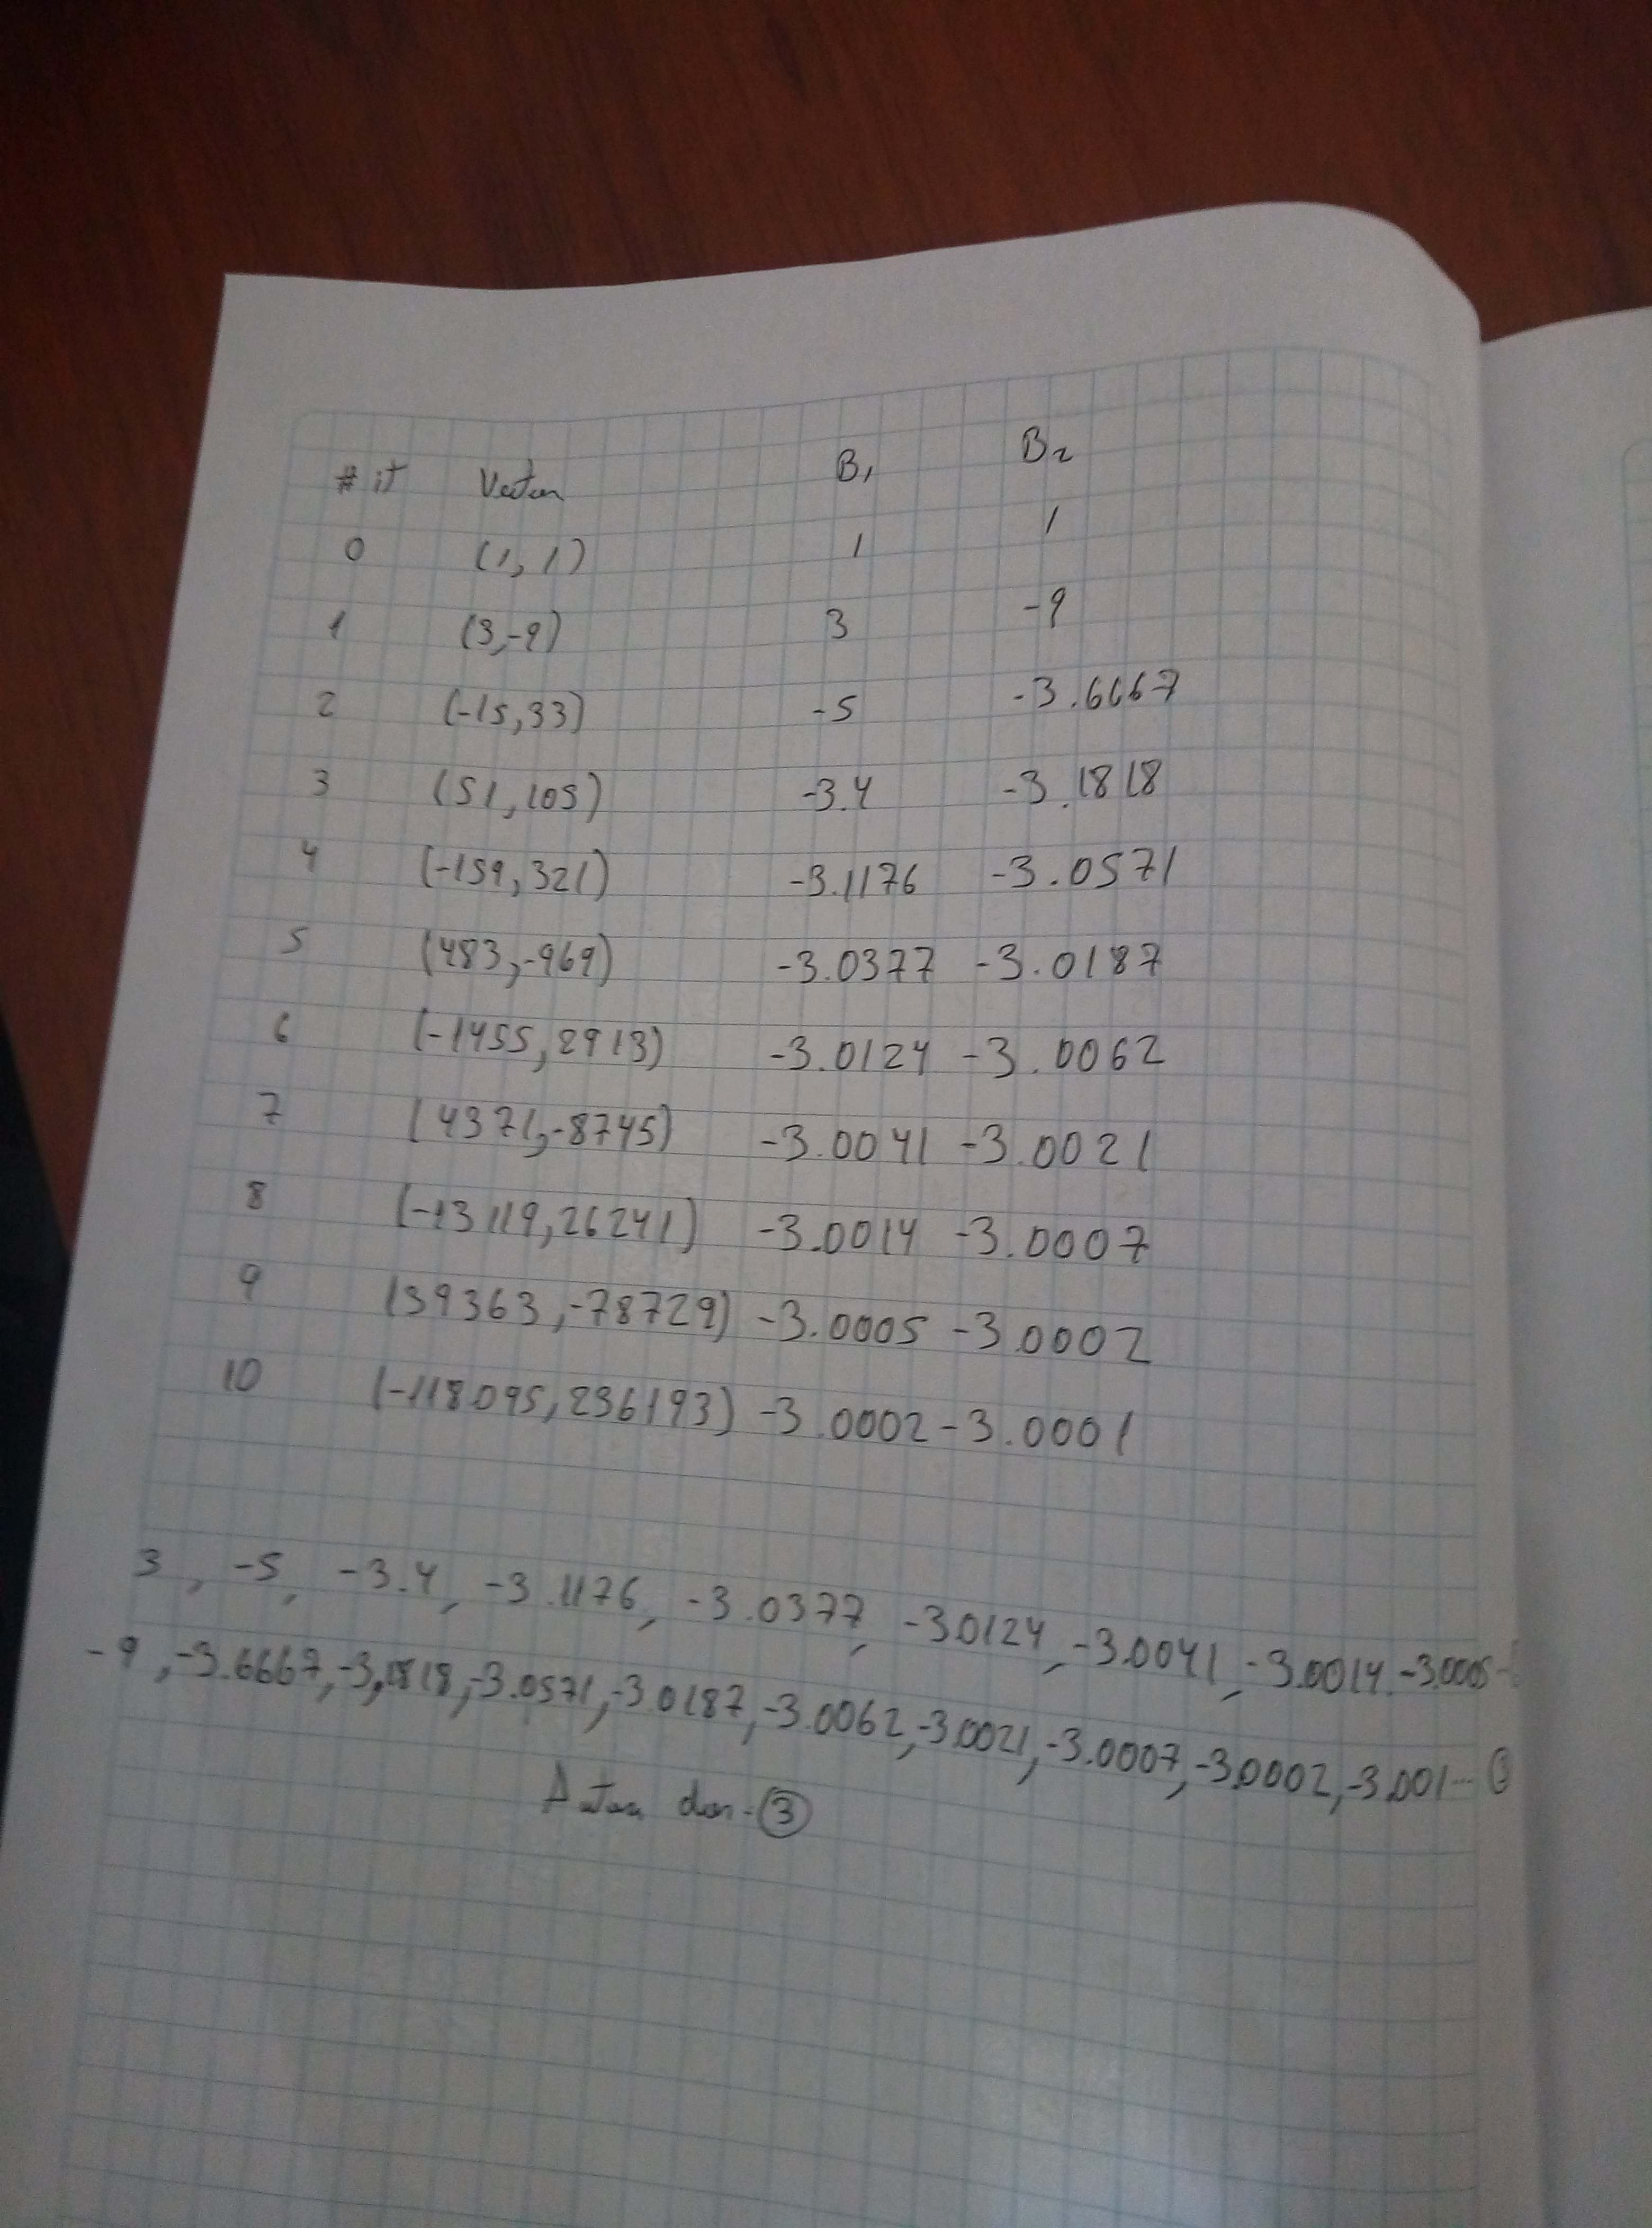 # it Vector B₁ B₂
0 (1, 1) 1 1
1 (3,-9) 3 -9
2 (-15,33) -5 -3.6667
3 (51,105) -3.4 -3.1818
4 (-159,321) -3.1176 -3.0571
5 (483,-969) -3.0377 -3.0187
6 (-1455,2913) -3.0124 -3.0062
7 (4371,-8745) -3.0041 -3.0021
8 (-13119,26241) -3.0014 -3.0007
9 (39363,-78729) -3.0005 -3.0002
10 (-118095,236193) -3.0002 -3.0001
3, -5, -3.4, -3.1176, -3.0377, -3.0124, -3.0041, -3.0014, -3.0005
-9, -3.6667, -3,1818, -3.0571, -3.0187, -3.0062, -3.0021, -3.0007, -3.0002, -3.001...
3